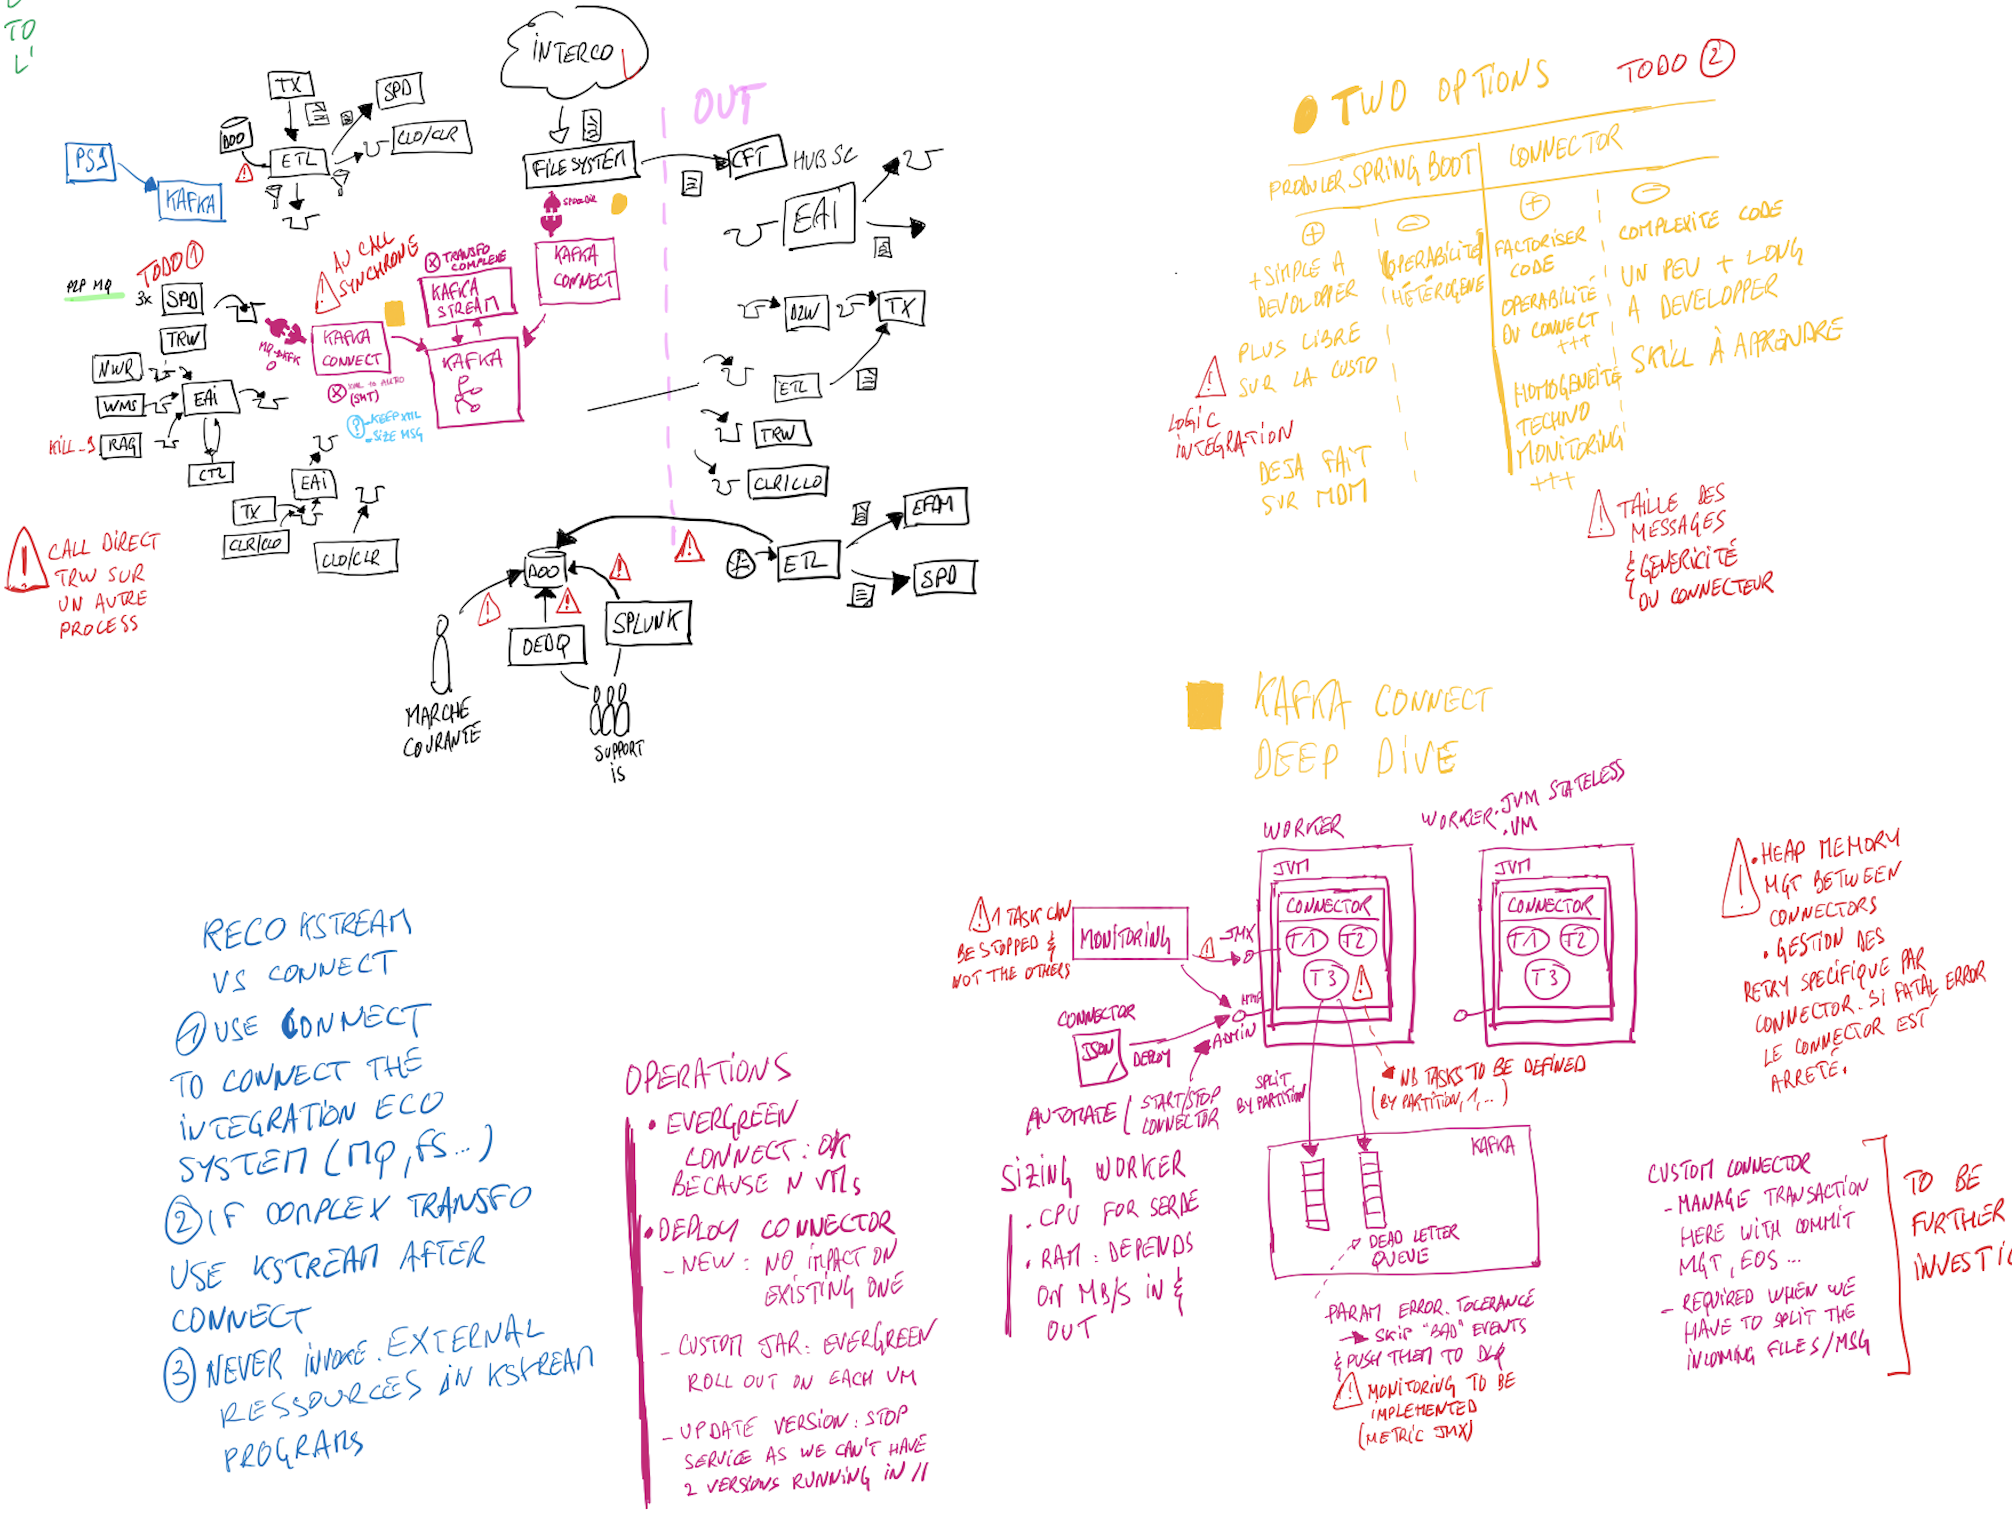 TO
L'
TX
SPD
DOO
ETL
CLO/CLR
PS1
KAFKA
INTERCO
FILE SYSTEM
SPOOLDIR
KAFKA
CONNECT
OUT
CFT
HUB SC
EAI
TX
ETL
TRW
CLR/CLO
EFAM
ETL
SPD
TODO ①
PLP MQ
3x
SPD
TRW
NWR
WMS
EAI
KILL
RAG
CTL
EAI
TX
CLR/CLO
CLO/CLR
AU CALL
SYNCHRONE
TRANSFO
COMPLEXE
KAFKA
STREAM
KAFKA
CONNECT
KAFKA
XML to AVRO
(SMT)
? - KEEP XML
- SIZE MSG
CALL DIRECT
TRW SUR
UN AUTRE
PROCESS
DOO
DEDQ
SPLUNK
MARCHE
COURANTE
SUPPORT
IS
TWO OPTIONS
TODO ②
PRODUCER SPRING BOOT
CONNECTOR
+
-
+
-
+ SIMPLE A
DEVOLOPPER
PLUS LIBRE
SUR LA CUSTO
DEJA FAIT
SUR MDM
OPERABILITÉ
HÉTÉROGENE
FACTORISER
CODE
OPERABILITÉ
DU CONNECT
+++
HOMOGENEITÉ
TECHNO
MONITORING
+++
COMPLEXITE CODE
UN PEU + LONG
A DEVELOPPER
SKILL À APPRENDRE
LOGIC
INTEGRATION
TAILLE DES
MESSAGES
& GENERICITÉ
DU CONNECTEUR
KAFKA CONNECT
DEEP DIVE
WORKER
JVM
CONNECTOR
T1
T2
T3
WORKER
.JVM STATELESS
.VM
JVM
CONNECTOR
T1
T2
T3
1 TASK CAN
BE STOPPED &
NOT THE OTHERS
MONITORING
JMX
HTTP
ADMIN
CONNECTOR
JSON
DEPLOY
AUTOMATE
START/STOP
CONNECTOR
SPLIT
BY PARTITION
NB TASKS TO BE DEFINED
(BY PARTITION, 1, ...)
KAFKA
DEAD LETTER
QUEUE
PARAM ERROR.TOLERANCE
SKIP "BAD" EVENTS
& PUSH THEM TO DLQ
MONITORING TO BE
IMPLEMENTED
(METRIC JMX)
. HEAP MEMORY
MGT BETWEEN
CONNECTORS
. GESTION DES
RETRY SPECIFIQUE PAR
CONNECTOR. SI FATAL ERROR
LE CONNECTOR EST
ARRETÉ.
CUSTOM CONNECTOR
- MANAGE TRANSACTION
HERE WITH COMMIT
MGT, EOS ...
- REQUIRED WHEN WE
HAVE TO SPLIT THE
INCOMING FILES/MSG
TO BE
FURTHER
INVESTI
SIZING WORKER
. CPU FOR SERDE
. RAM : DEPENDS
ON MB/S IN &
OUT
OPERATIONS
• EVERGREEN
CONNECT : OK
BECAUSE N VMs
• DEPLOY CONNECTOR
- NEW : NO IMPACT ON
EXISTING ONE
- CUSTOM JAR : EVERGREEN
ROLL OUT ON EACH VM
- UPDATE VERSION : STOP
SERVICE AS WE CAN'T HAVE
2 VERSIONS RUNNING IN //
RECO KSTREAM
VS CONNECT
① USE CONNECT
TO CONNECT THE
INTEGRATION ECO
SYSTEM (MQ, FS...)
② IF COMPLEX TRANSFO
USE KSTREAM AFTER
CONNECT
③ NEVER INVOKE EXTERNAL
RESSOURCES IN KSTREAM
PROGRAMS